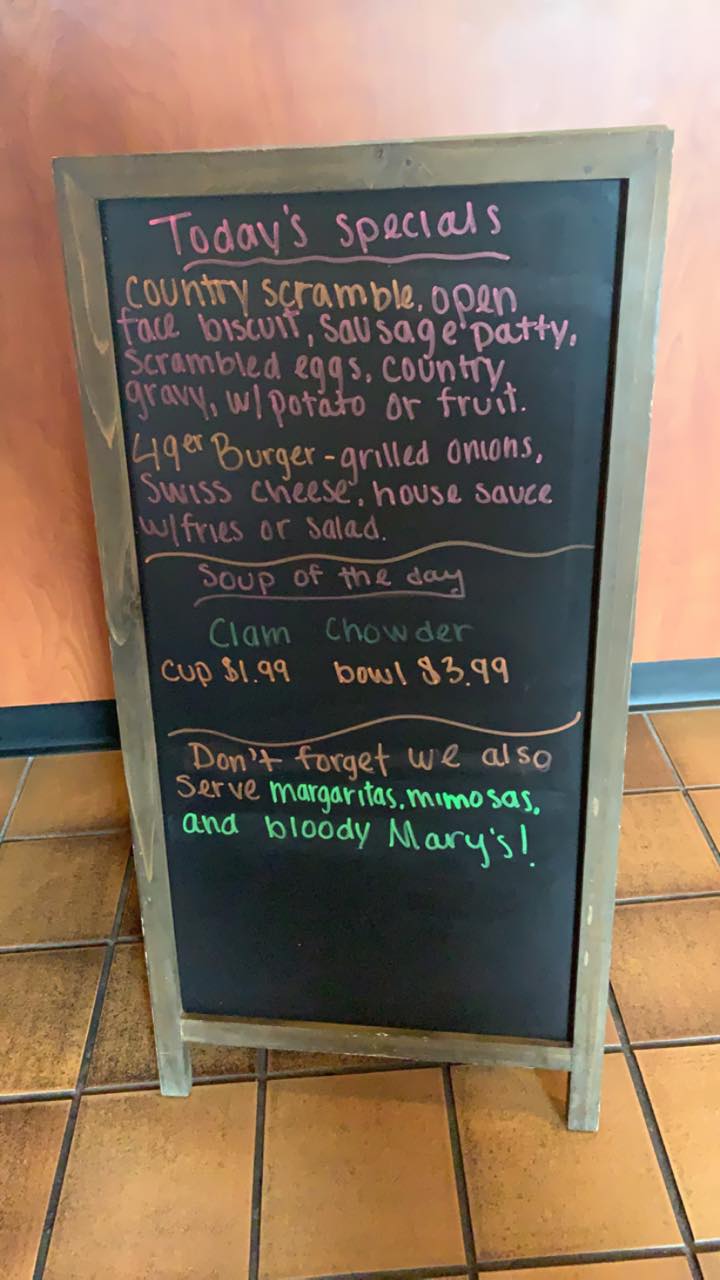 Today's specials
country scramble, open
face biscuit, sausage patty,
scrambled eggs, country
gravy, w/potato or fruit.
49er Burger - grilled onions,
swiss cheese, house sauce
w/fries or salad.
Soup of the day
Clam Chowder
cup $1.99 bowl $3.99
Don't forget we also
serve margaritas, mimosas,
and bloody Mary's!